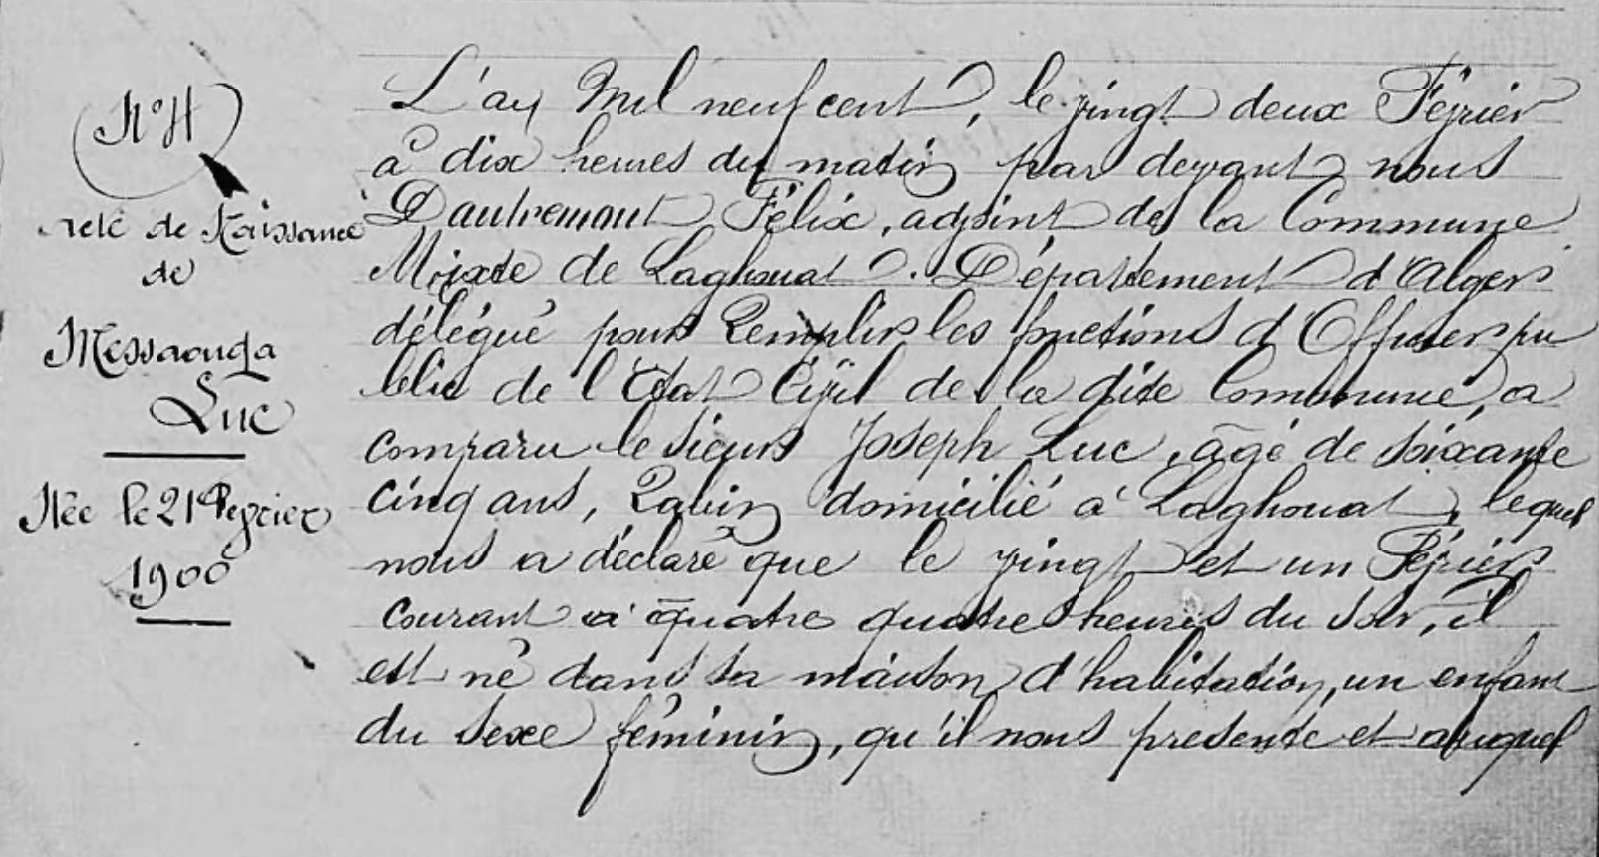 N° 4
Acte de Naissance
de
Messaouda
Luc
Née le 21 Fevrier
1900
L'an Mil neuf cent, le vingt deux Février
à dix heures du matin par devant nous
Dautremont Félix, adjoint de la Commune
Mixte de Laghouat. Département d'Alger
délégué pour Remplir les fonctions d'Officier pu
blic de l'Etat Civil de la dite Commune, a
comparu le sieur Joseph Luc, âgé de soixante
cinq ans, Rabin domicilié à Laghouat, lequel
nous a déclaré que le vingt et un Février
courant à quatre quatre heures du soir, il
est né dans sa maison d'habitation, un enfant
du sexe féminin, qu'il nous presente et auquel